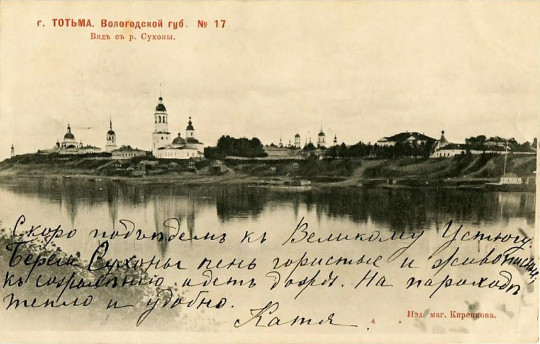 г. ТОТЬМА. Вологодской губ. № 17
Видъ съ р. Сухоны.
Скоро подъѣдемъ къ Великому Устюгу.
Берега Сухоны гористые и живописны,
къ сожалѣнію идетъ дождь. На пароходѣ
тепло и удобно.
Катя
Изд. маг. Киренкова.
4